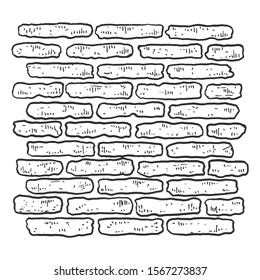 shutterstock.com · 1567273837